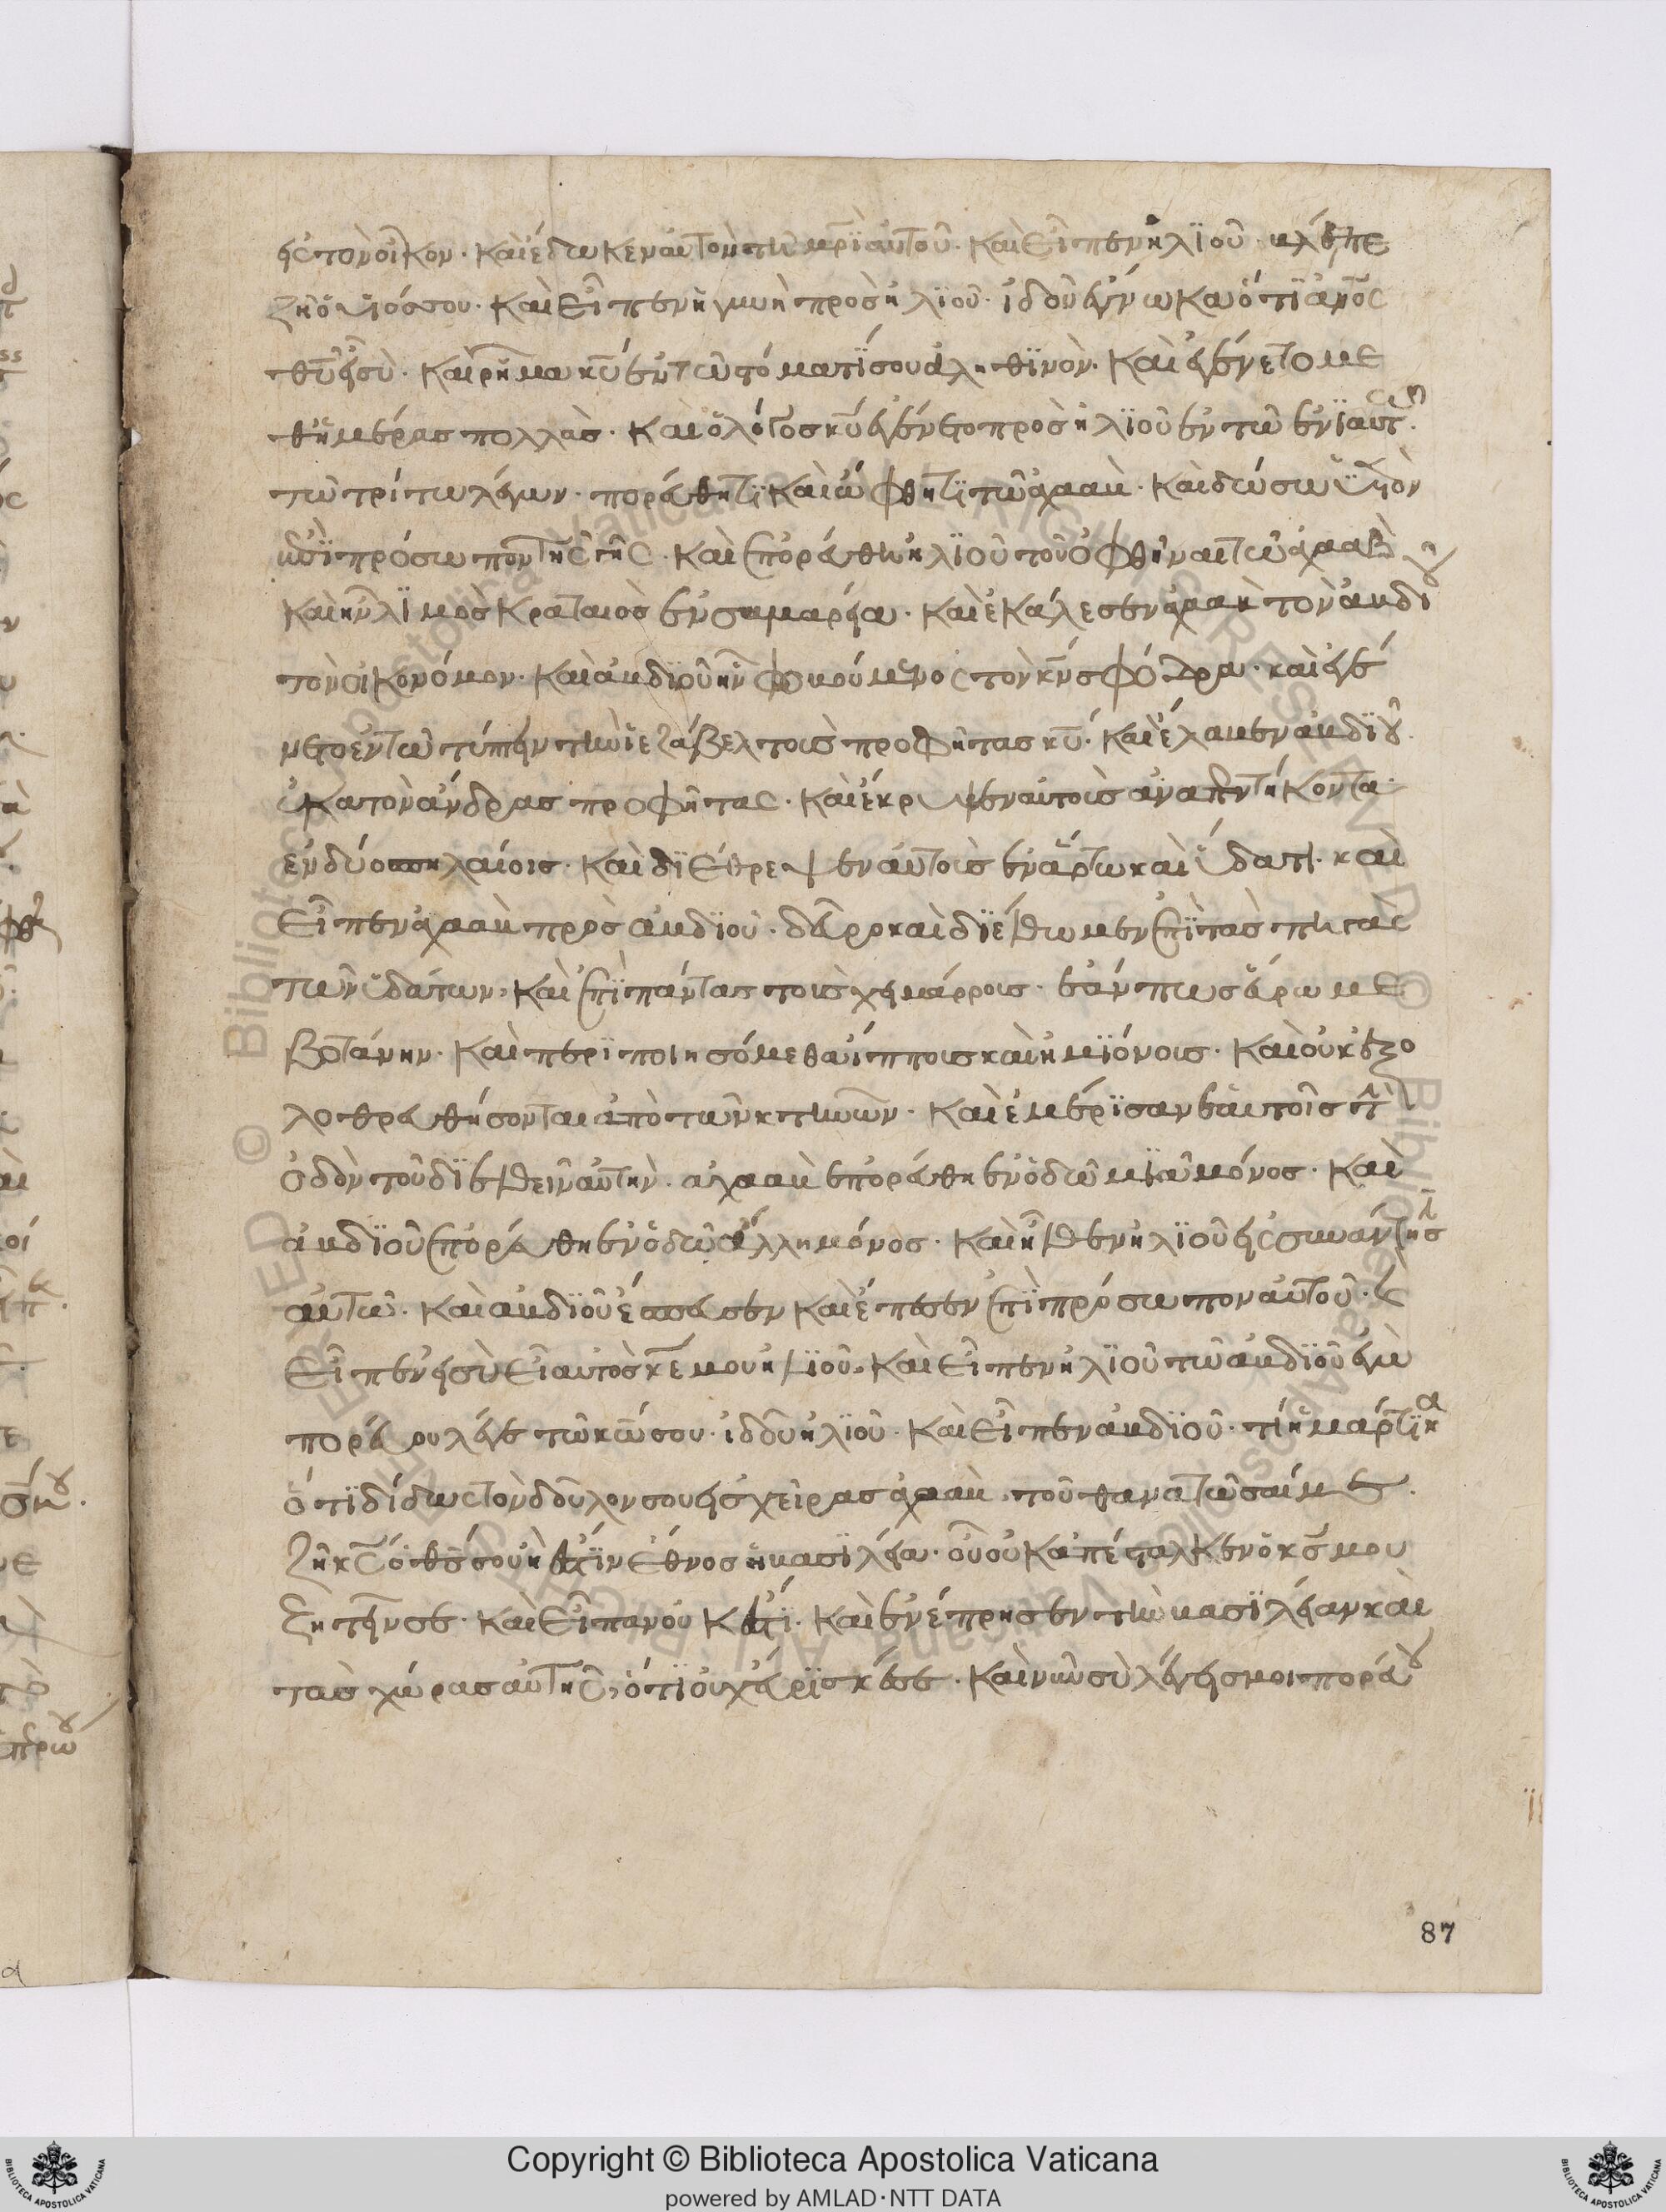 εἰς τὸν οἶκον. καὶ ἔδωκεν αὐτὸν τῆ μρὶ αὐτοῦ. καὶ εἶπεν ἡλϊοῦ βλέπε
ζῆ ὁ ὑϊός σου. καὶ εἶπεν ἡ γυνὴ πρὸς ἡλϊοῦ. ἰδοὺ ἔγνωκα ὅτϊ ἄνος
θῦ εἶ σὺ. καὶ ῥῆμα κῦ ἐν τῶ στόματί σου ἀληθϊνὸν. καὶ ἐγένετο με
θ ἡμέρας πολλὰς. καὶ ὁ λόγος κῦ ἐγένετο πρὸς ἡλϊοῦ ἐν τῶ ἐνϊαυτῶ
τῶ τρίτω λέγων. πορεύθητϊ καὶ ὤφθητϊ τῶ ἀχαὰβ. καὶ δώσω ὑετὸν
ἐπὶ πρόσωπον τῆς γῆς. καὶ ἐπορεύθη ἡλϊοῦ τοῦ ὀφθῆναι τῶ ἀχαὰβ
καὶ ἦν λϊμὸς κραταιὸς ἐν σαμαρεία. καὶ ἐκάλεσεν ἀχαὰβ τὸν ἀβδιοῦ
τὸν οἰκονόμον. καὶ ἀβδϊοῦ ἦν φοβούμενος τὸν κν σφόδρα. καὶ ἐγέ
νετο ἐν τῶ τύπτειν τὴν ϊεζάβελ τοὺς προφήτας κῦ. καὶ ἔλαβεν ἀβδϊοῦ
ἑκατὸν ἄνδρας προφήτας. καὶ ἔκρυψεν αὐτοὺς ἀνὰ πεντήκοντα
ἐν δύο σπηλαίοις. καὶ δϊέτρεψεν αὐτοὺς ἐν ἄρτω καὶ ὕδατι. καὶ
εἶπεν ἀχαὰβ πρὸς ἀβδϊοῦ. δεῦρο καὶ δϊέλθωμεν ἐπὶ τὰς πηγὰς
τῶν ὑδάτων. καὶ ἐπὶ πάντας τοὺς χειμάρρους. ἐάν πως εὕρωμε
βοτάνην. καὶ περιποιησόμεθα ἵππους καὶ ἡμϊόνους. καὶ οὐκ ἐξο
λοθρευθήσονται ἀπὸ τῶν κτηνῶν. καὶ ἐμέρϊσαν ἑαυτοῖς τὴν
ὁδὸν τοῦ δϊελθεῖν αὐτὴν. ἀχαὰβ ἐπορεύθη ἐν ὁδῶ μϊᾶ μόνος. καὶ
ἀβδϊοῦ ἐπορεύθη ἐν ὁδῶ ἄλλη μόνος. καὶ ἦλθεν ἡλϊοῦ εἰς συνάντησϊν
αὐτῶ. καὶ ἀβδϊοῦ ἔσπευσεν καὶ ἔπεσεν ἐπὶ πρόσωπον αὐτοῦ. καὶ
εἶπεν εἰ σὺ εἶ αὐτὸς κέ μου ἡλϊοῦ. καὶ εἶπεν ἡλϊοῦ τῶ ἀβδϊοῦ ἐγὼ
πορεύου λέγε τῶ κῶ σου. ἰδοὺ ἡλϊοῦ. καὶ εἶπεν ἀβδϊοῦ. τί ἡμάρτϊκα
ὅτϊ δίδως τὸν δοῦλον σου εἰς χεῖρας ἀχαὰβ τοῦ θανατῶσαί με.
ζῆ κς ὁ θς σου εἰ ἔστϊν ἔθνος ἢ βασιλεία. οὗ οὐκ ἀπέσταλκεν ὁ κς μου
ζητεῖν σε. καὶ εἶπαν οὐκ ἔστϊ. καὶ ἐνέπρησεν τὴν βασιλείαν καὶ
τὰς χώρας αὐτῆς, ὅτϊ οὐχ εὕρϊσκέ σε. καὶ νῦν σὺ λέγεις μοι πορεύου
87
Copyright © Biblioteca Apostolica Vaticana
powered by AMLAD·NTT DATA